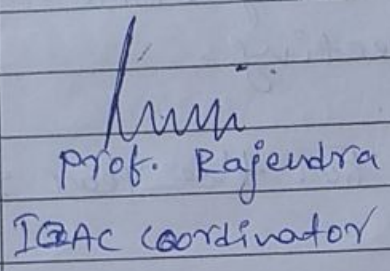 Prof. Rajendra
IQAC Coordinator